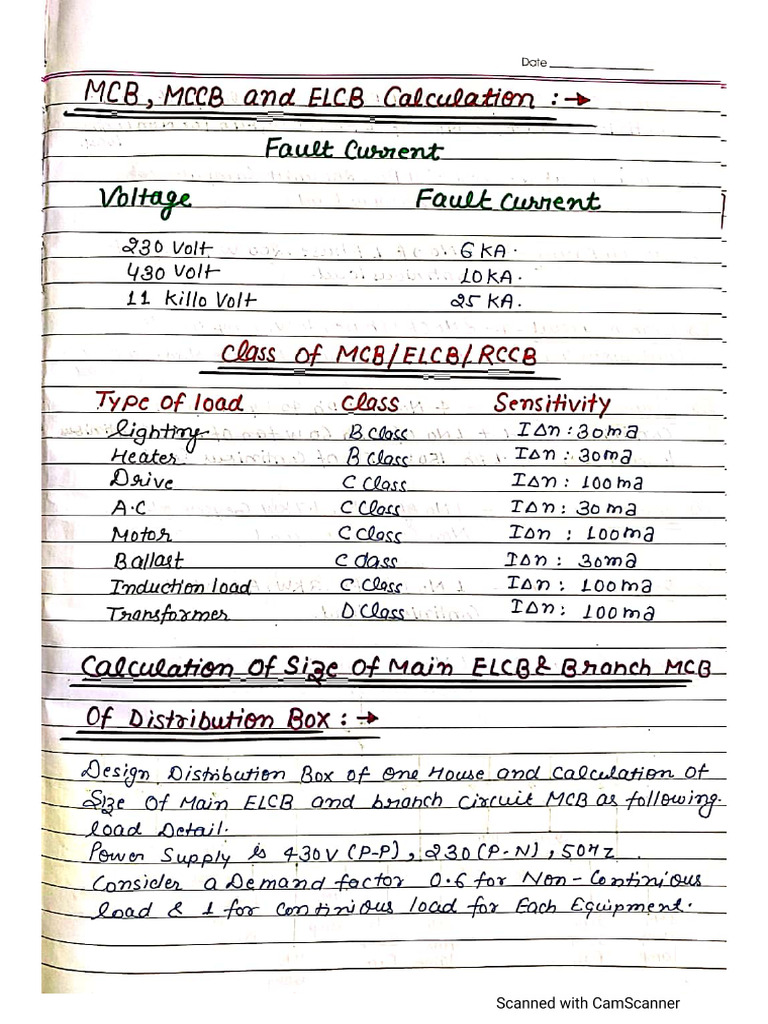 Date
MCB, MCCB and ELCB Calculation :→
Fault Current
Voltage Fault Current
230 Volt 6 KA.
430 Volt 10 KA.
11 Killo Volt 25 KA.
Class Of MCB/ELCB/RCCB
Type Of load Class Sensitivity
lighting B Class IΔn : 30ma
Heater B Class IΔn : 30ma
Drive C Class IΔn : 100ma
A.C C Class IΔn : 30 ma
Motor C Class IΔn : 100ma
Ballast C Class IΔn : 30ma
Induction load C Class IΔn : 100ma
Transformer D Class IΔn : 100ma
Calculation Of Size Of Main ELCB & Branch MCB
Of Distribution Box :→
Design Distribution Box of One House and Calculation of
Size Of Main ELCB and branch Circuit MCB as following
load Detail.
Power Supply is 430V (P-P), 230 (P-N), 50Hz.
Consider a Demand factor 0.6 for Non-Continious
load & 1 for continious load for Each Equipment.
Scanned with CamScanner